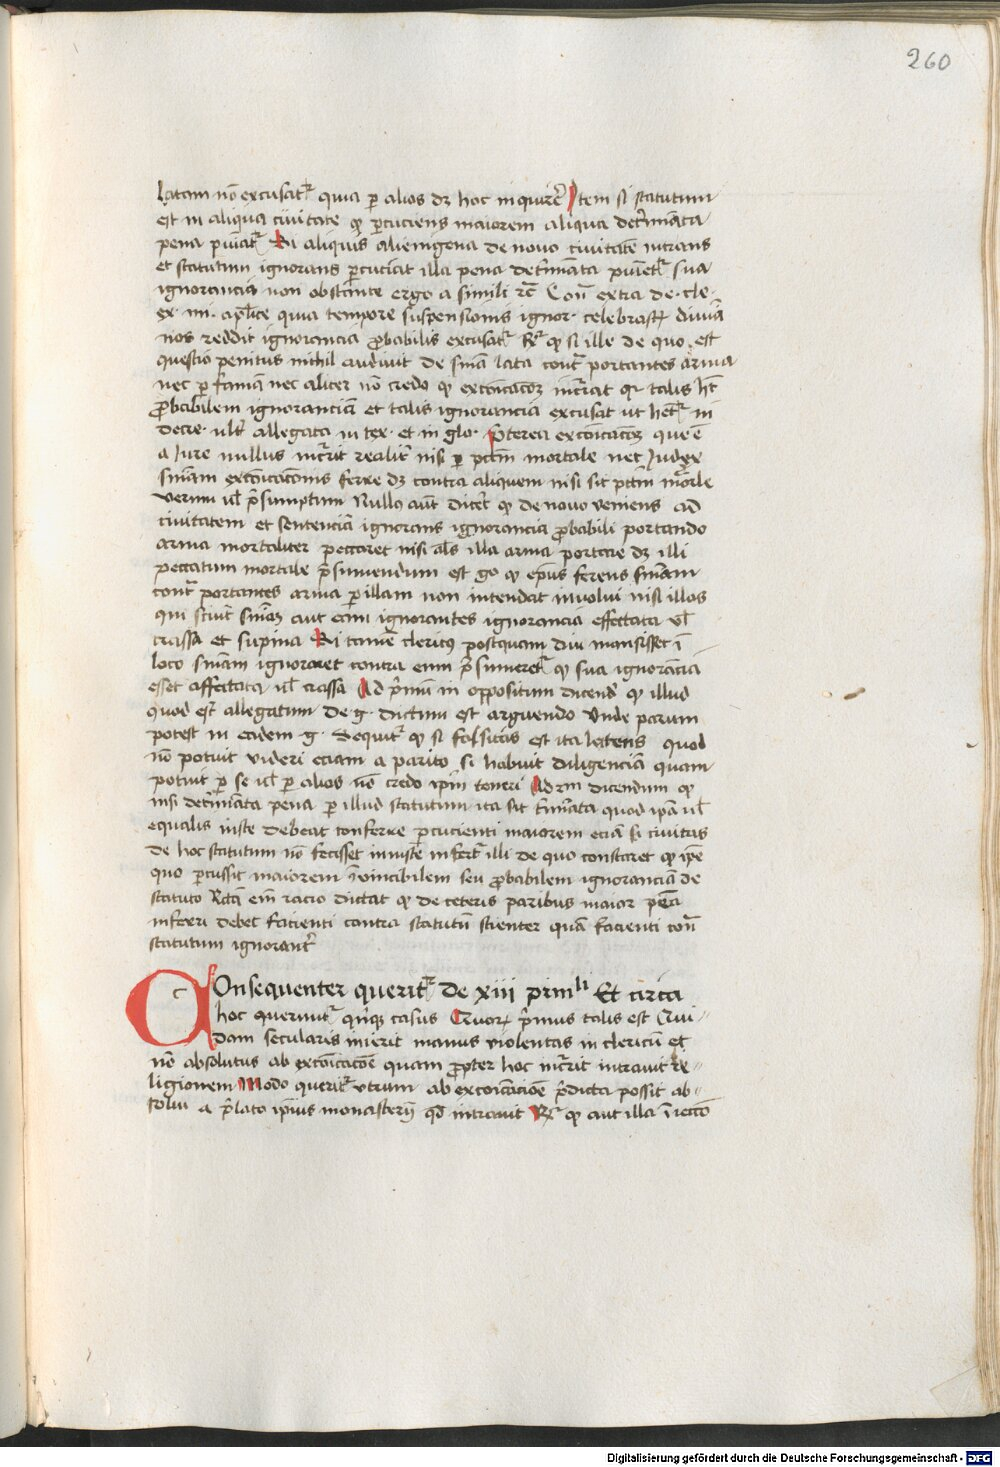 260
latam nō excusatr quia per alios dz hoc inquirere Item si statutum
est in aliqua civitate qz percuciens maiorem aliqua determinata
pena puniatr Si aliquis alienigena de novo civitatē intrans
et statutum ignorans percuciat illa pena determinata punietr sua
ignorancia non obstante ergo a simili rc Contra extra de cle.
ex. mi. aplice quia tempore suspensionis ignor. celebrastz divina
nos reddit ignorancia probabilis excusatr Rr qz si ille de quo est
questio penitus nichil audivit de snīa lata contra portantes arma
nec per famam nec aliter nō credo qz excōicacōz incurrat qr talis hȝ
probabilem ignoranciā et talis ignorancia excusat ut hetr in
decre. ult allegata in tex. et in glo. preterea excōicacōz que ē
a Iure nullus incurrit realiter nisi per pctm mortale nec Iudex
snīam excōicacōnis ferre dz contra aliquem nisi sit pctm mortale
verum ul presumptum Nullus autem diceret qz de novo veniens ad
civitatem et sentenciā ignorans ignorancia probabili portando
arma mortaliter peccaret nisi als illa arma portare dz illi
peccatum mortale presumendum est go qz epus ferens snīam
contra portantes arma per illam non intendat involui nisi illos
qui sciunt snīaz aut eam ignorantes ignorancia effectata ul
crassa et supina Si tamē clericus postquam diu mansisset ī
loco snīam ignoraret contra eum presumeretr qz sua ignorācia
esset affectata ul crassa Ad primū in oppositum dicend qz illud
quod est allegatum de .g. dictum est arguendo Unde parum
potest in eadem .g. sequitr qz si falsitas est ita latens quod
nō potuit videri eciam a perito si habuit diligenciā quam
potuit per se ul per alios nō credo ipm teneri Ad 2m dicendum qz
nisi determinata pena per illud statutum ita sit terminata quod ipā ul
equalis iuste debeat conferre percucienti maiorem eciā si civitas
de hoc statutum nō fecisset iniuste infertr illi de quo constaret qz ipse
quo percussit maiorem invincibilem seu probabilem ignoranciā de
statuto Recta em racio dictat qz de ceteris paribus maior pena
inferri debet facienti contra statutū scienter quā facienti contra
statutum ignoranter
Consequenter queritr de xiii primli Et circa
hoc queruntr quinqz casus Quorum primus talis est Qui-
dam secularis iniecit manus violentas in clericū et
nō absolutus ab excōicacōe quam propter hoc incurrit intravit re-
ligionem Modo queritr utrum ab excōicacioē predicta possit ab-
solui a prelato ipsius monasterij qd intravit Rr qz aut illa iniectio
Digitalisierung gefördert durch die Deutsche Forschungsgemeinschaft - DFG